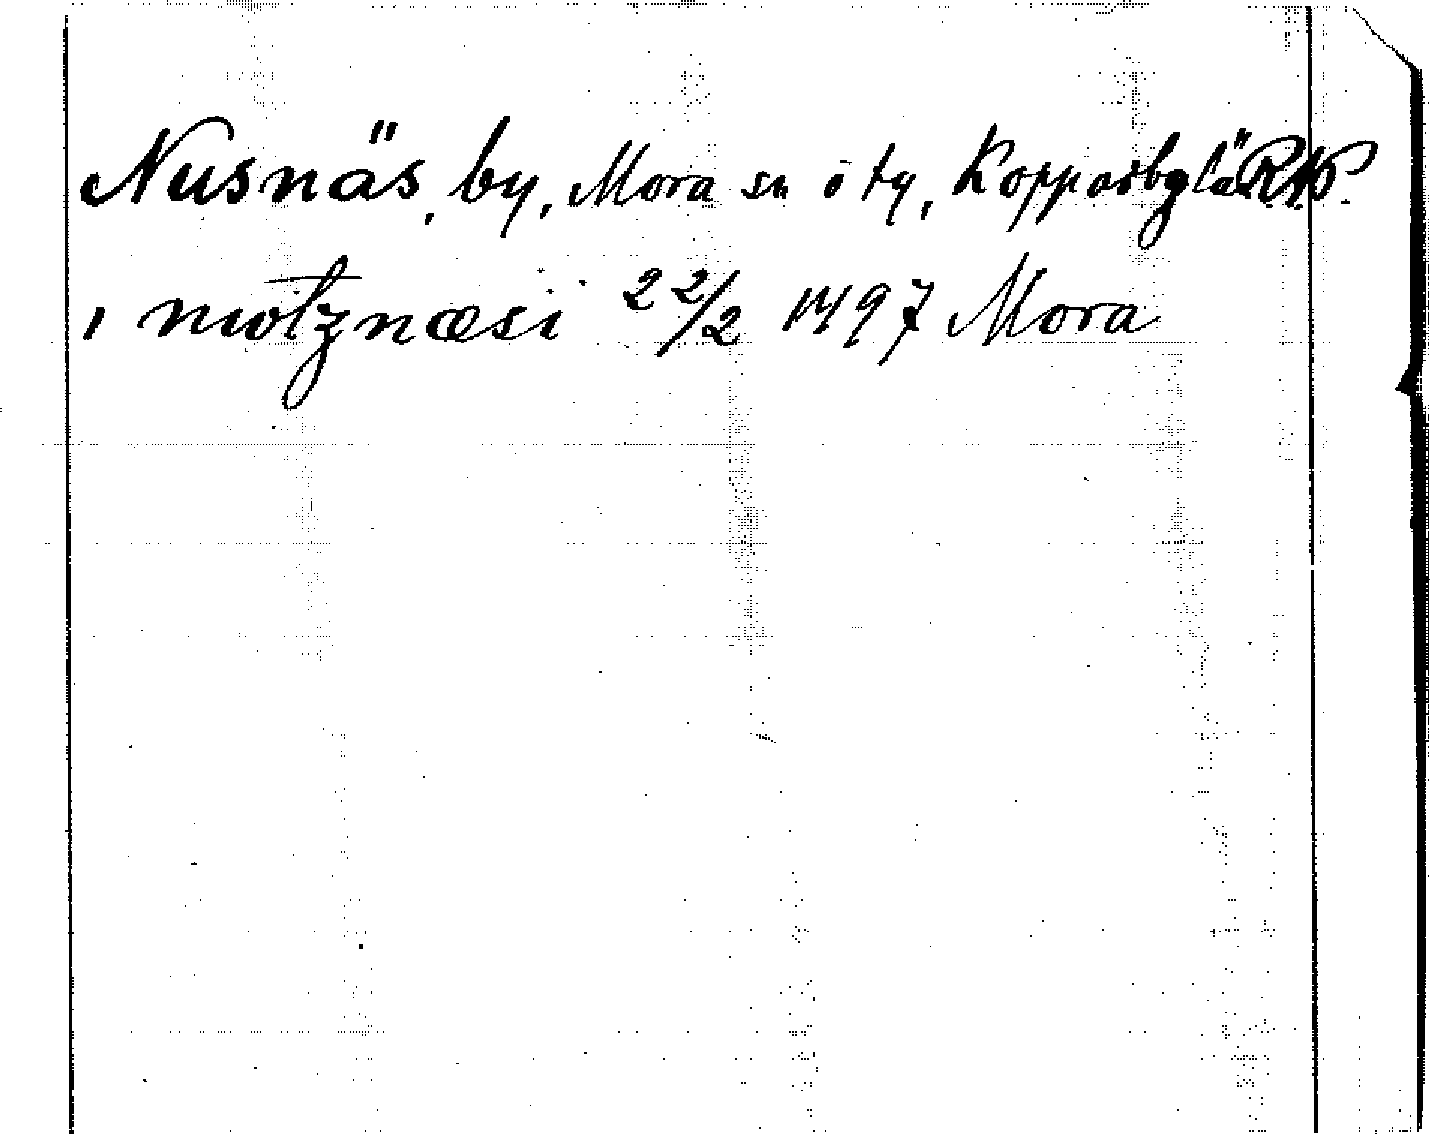 Nusnäs, by, Mora sn o tg, Kopparbg lä RAP.
i motznæsi 22/2 1497 Mora